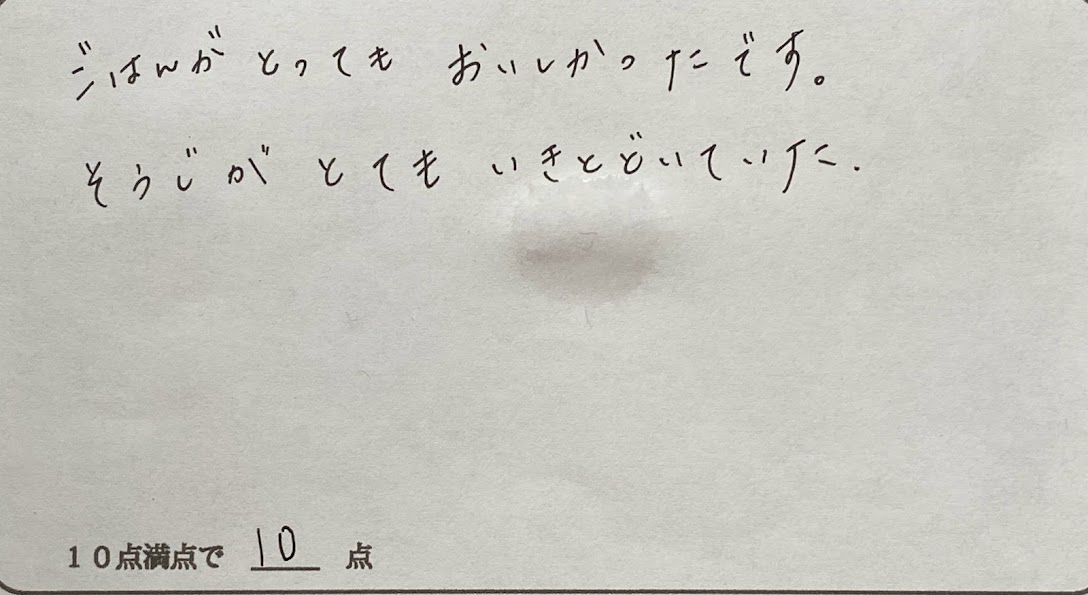 ごはんがとっても おいしかったです。
そうじが とても いきとどいていた.
10点満点で 10 点